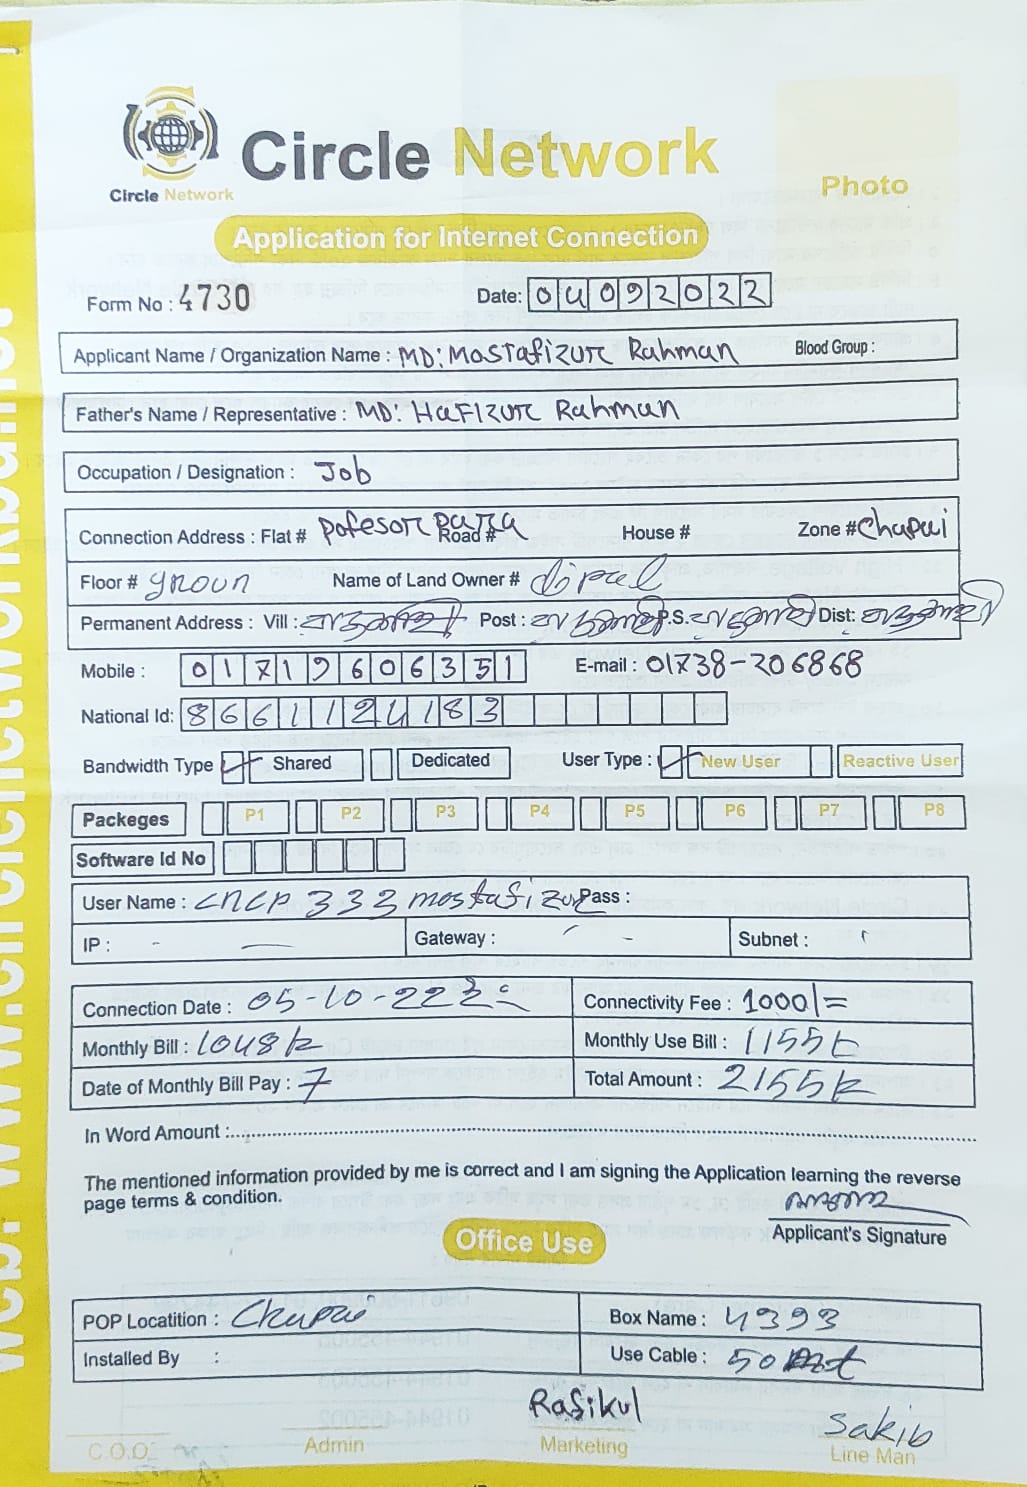 Circle Network
Circle Network
Photo
Application for Internet Connection
Form No : 4730
Date: 04092022
Applicant Name / Organization Name : MD: Mostafizur Rahman Blood Group :
Father's Name / Representative : MD: Hafizur Rahman
Occupation / Designation : Job
Connection Address : Flat # Pofesor Para Road # House # Zone # Chapai
Floor # Name of Land Owner # dipul
Permanent Address : Vill : Post : P.S. Dist:
Mobile : 01719606351 E-mail : 01738-206868
National Id: 8661124183
Bandwidth Type Shared Dedicated User Type : New User Reactive User
Packeges P1 P2 P3 P4 P5 P6 P7 P8
Software Id No
User Name : CNCP 333 mostafizur Pass :
IP : - — Gateway : - Subnet :
Connection Date : 05-10-22 Connectivity Fee : 1000/=
Monthly Bill : 1048 tk Monthly Use Bill : 1155 t
Date of Monthly Bill Pay : 7 Total Amount : 2155 k
In Word Amount :
The mentioned information provided by me is correct and I am signing the Application learning the reverse
page terms & condition.
Applicant's Signature
Office Use
POP Locatition : Chapai Box Name : 4393
Installed By : Use Cable : 50 mt
Rafikul Sakib
C.O.O Admin Marketing Line Man